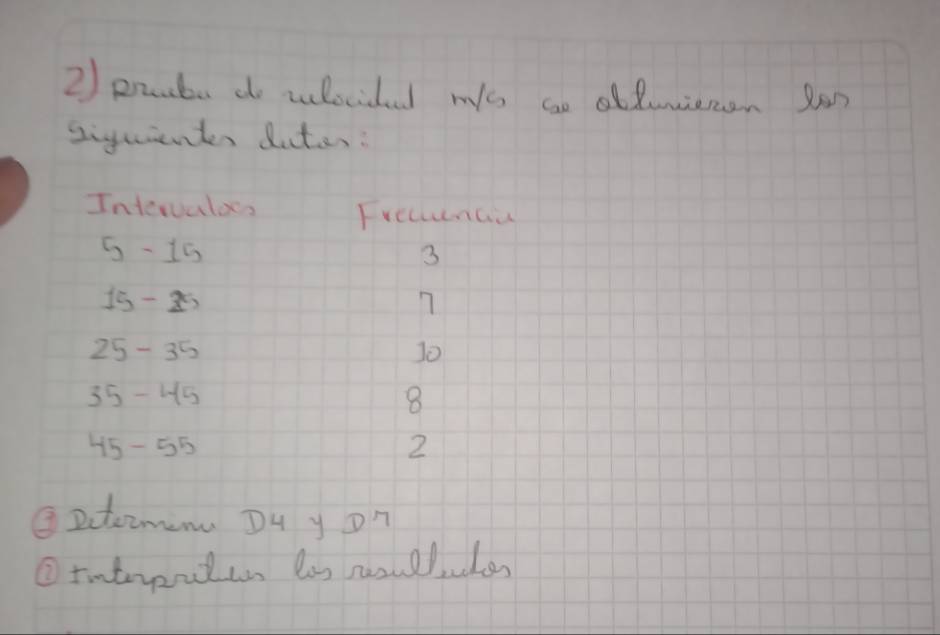 2) prueba de velocidad m/s se obtuvieron los
siguientes datos:
Intervalos Frecuencia
5 - 15 3
15 - 25 7
25 - 35 10
35 - 45 8
45 - 55 2
① Determine D4 y D7
② Interpretar los resultados